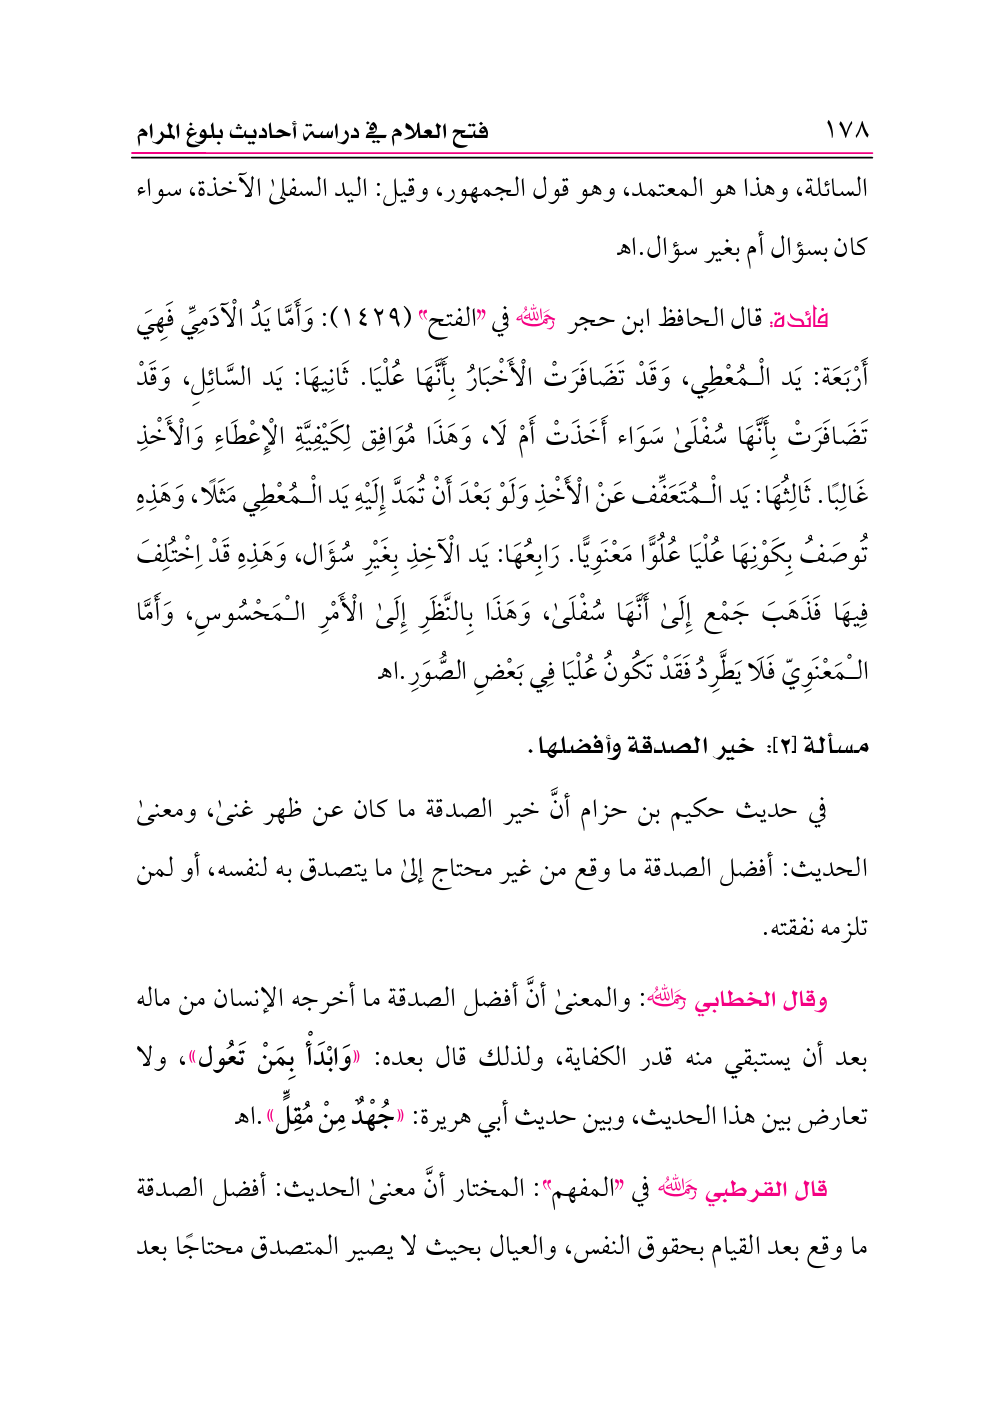 ١٧٨ فتح العلام في دراسة أحاديث بلوغ المرام
السائلة، وهذا هو المعتمد، وهو قول الجمهور، وقيل: اليد السفلىٰ الآخذة، سواء
كان بسؤال أم بغير سؤال.اهـ
فائدة: قال الحافظ ابن حجر رحمه الله في "الفتح" (١٤٢٩): وَأَمَّا يَدُ الْآدَمِيِّ فَهِيَ
أَرْبَعَة: يَد الْـمُعْطِي، وَقَدْ تَضَافَرَتْ الْأَخْبَارُ بِأَنَّهَا عُلْيَا. ثَانِيهَا: يَد السَّائِلِ، وَقَدْ
تَضَافَرَتْ بِأَنَّهَا سُفْلَىٰ سَوَاء أَخَذَتْ أَمْ لَا، وَهَذَا مُوَافِق لِكَيْفِيَّةِ الْإِعْطَاءِ وَالْأَخْذِ
غَالِبًا. ثَالِثُهَا: يَد الْـمُتَعَفِّف عَنْ الْأَخْذِ وَلَوْ بَعْدَ أَنْ تُمَدَّ إِلَيْهِ يَد الْـمُعْطِي مَثَلًا، وَهَذِهِ
تُوصَفُ بِكَوْنِهَا عُلْيَا عُلُوًّا مَعْنَوِيًّا. رَابِعُهَا: يَد الْآخِذِ بِغَيْرِ سُؤَال، وَهَذِهِ قَدْ اِخْتُلِفَ
فِيهَا فَذَهَبَ جَمْع إِلَىٰ أَنَّهَا سُفْلَىٰ، وَهَذَا بِالنَّظَرِ إِلَىٰ الْأَمْرِ الْـمَحْسُوسِ، وَأَمَّا
الْـمَعْنَوِيّ فَلَا يَطَّرِدُ فَقَدْ تَكُونُ عُلْيَا فِي بَعْضِ الصُّوَرِ.اهـ
مسألة [٢]: خير الصدقة وأفضلها.
في حديث حكيم بن حزام أنَّ خير الصدقة ما كان عن ظهر غنىٰ، ومعنىٰ
الحديث: أفضل الصدقة ما وقع من غير محتاج إلىٰ ما يتصدق به لنفسه، أو لمن
تلزمه نفقته.
وقال الخطابي رحمه الله: والمعنىٰ أنَّ أفضل الصدقة ما أخرجه الإنسان من ماله
بعد أن يستبقي منه قدر الكفاية، ولذلك قال بعده: «وَابْدَأْ بِمَنْ تَعُول»، ولا
تعارض بين هذا الحديث، وبين حديث أبي هريرة: «جُهْدٌ مِنْ مُقِلٍّ».اهـ
قال القرطبي رحمه الله في "المفهم": المختار أنَّ معنىٰ الحديث: أفضل الصدقة
ما وقع بعد القيام بحقوق النفس، والعيال بحيث لا يصير المتصدق محتاجًا بعد